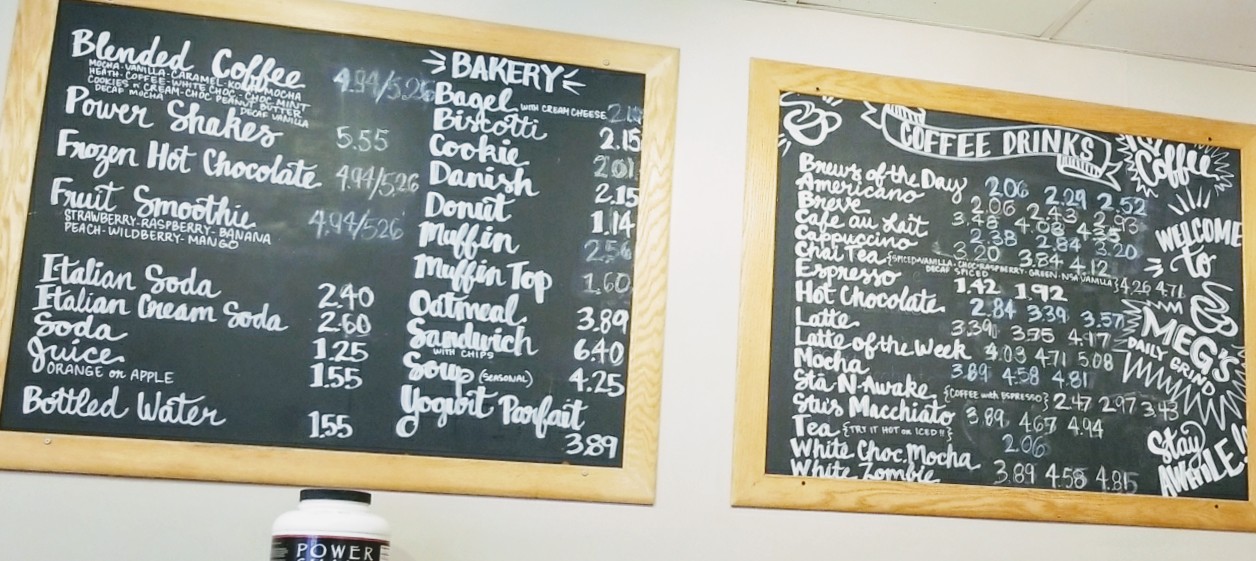 Blended Coffee 4.94/5.26
MOCHA·VANILLA·CARAMEL·KONA MOCHA
HEATH·COFFEE·WHITE CHOC·CHOC MINT
COOKIES n' CREAM·CHOC PEANUT BUTTER
DECAF MOCHA DECAF VANILLA
Power Shakes 5.55
Frozen Hot Chocolate 4.94/5.26
Fruit Smoothie 4.94/5.26
STRAWBERRY·RASPBERRY·BANANA
PEACH·WILDBERRY·MANGO
Italian Soda 2.40
Italian Cream Soda 2.60
Soda 1.25
Juice 1.55
ORANGE or APPLE
Bottled Water 1.55
BAKERY
Bagel WITH CREAM CHEESE
Biscotti 2.15
Cookie 2.01
Danish 2.15
Donut 1.14
Muffin 2.56
Muffin Top 1.60
Oatmeal 3.89
Sandwich 6.40
WITH CHIPS
Soup (SEASONAL) 4.25
Yogurt Parfait
3.89
POWER
COFFEE DRINKS
Brews of the Day 2.06 2.29 2.52
Americano 2.06 2.43 2.93
Breve 3.48 4.03 4.35
Cafe au Lait 2.38 2.84 3.20
Cappuccino 3.20 3.84 4.12
Chai Tea {SPICED·VANILLA·CHOC·RASPBERRY·GREEN·NSA VANILLA} 4.26 4.71
DECAF SPICED
Espresso 1.42 1.92
Hot Chocolate 2.84 3.39 3.57
Latte 3.39 3.75 4.17
Latte of the Week 4.03 4.71 5.08
Mocha 3.89 4.58 4.81
Sta-N-Awake {COFFEE with ESPRESSO} 2.47 2.97 3.43
Stu's Macchiato 3.89 4.67 4.94
Tea {TRY IT HOT or ICED!!} 2.06
White Choc. Mocha 3.89 4.58 4.85
White Zombie
Coffee
WELCOME
to
MEG'S
DAILY GRIND
Stay
AWHILE!!